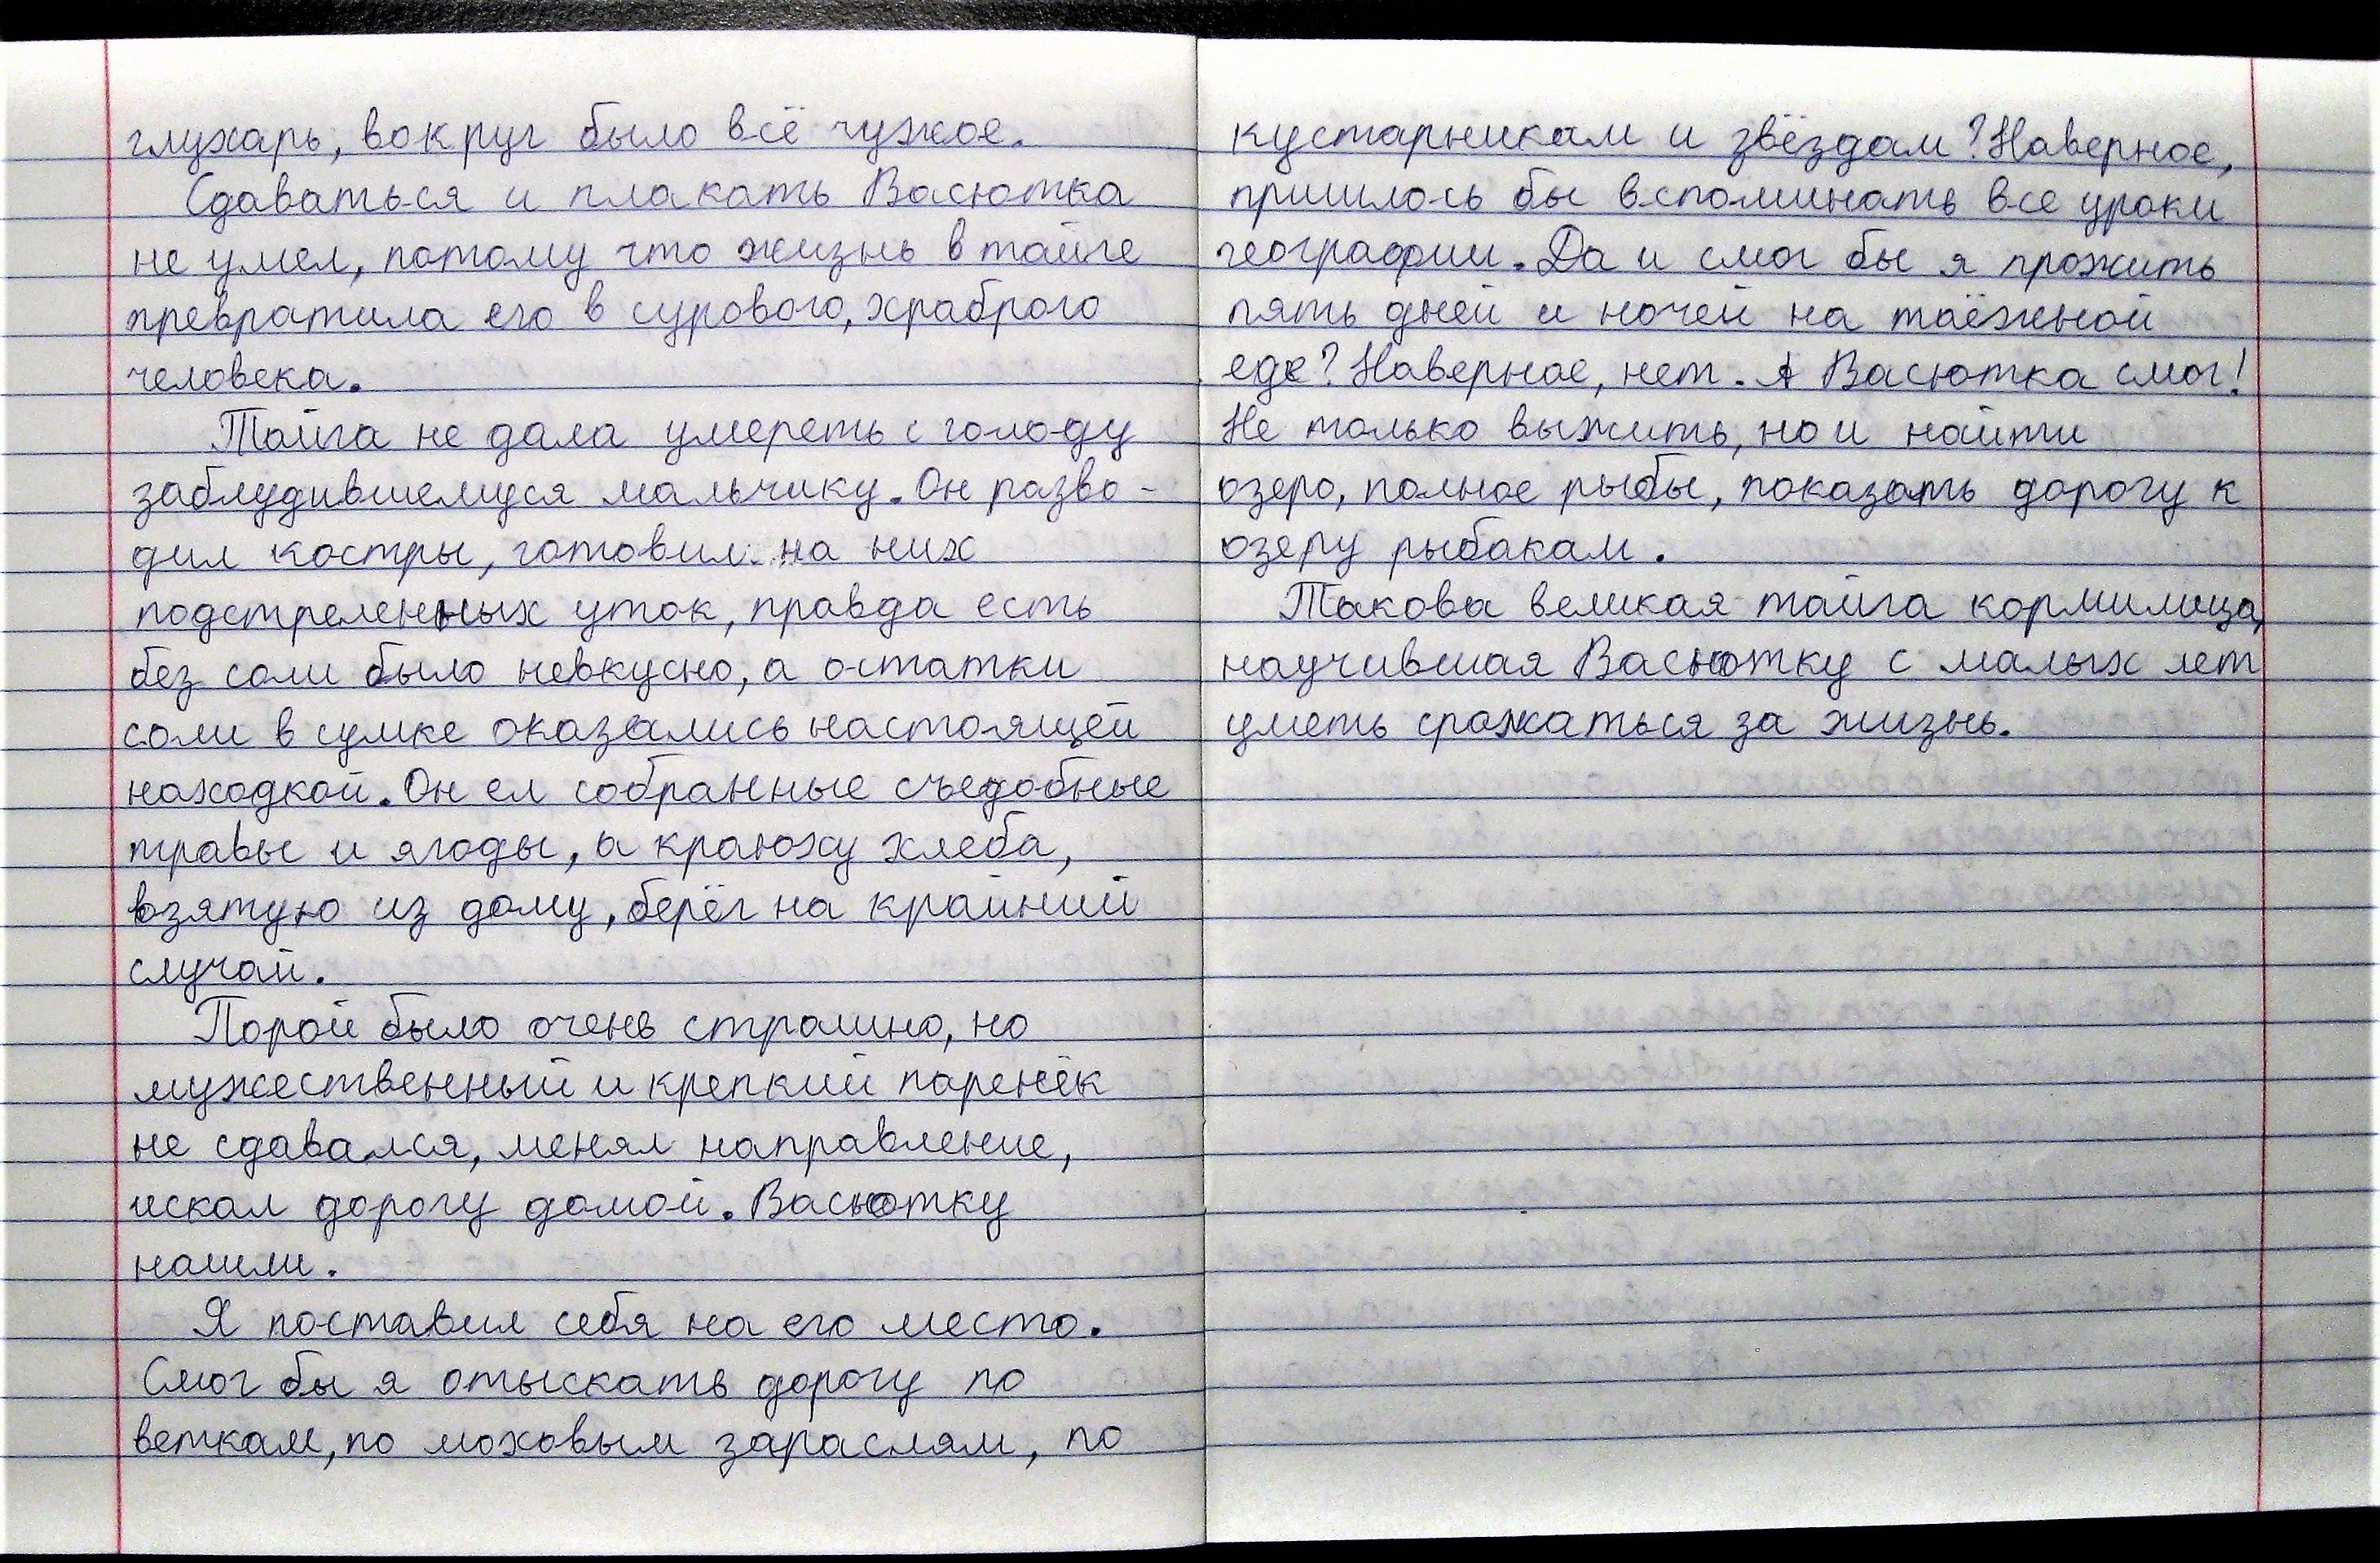 глухарь, вокруг было всё чужое.
Сдаваться и плакать Васютка
не умел, потому что жизнь в тайге
превратила его в сурового, храброго
человека.
Тайга не дала умереть с голоду
заблудившемуся мальчику. Он разво-
дил костры, готовил на них
подстреленных уток, правда есть
без соли было невкусно, а остатки
соли в сумке оказались настоящей
находкой. Он ел собранные съедобные
травы и ягоды, а краюху хлеба,
взятую из дому, берёг на крайний
случай.
Порой было очень страшно, но
мужественный и крепкий паренёк
не сдавался, менял направление,
искал дорогу домой. Васютку
нашли.
Я поставил себя на его место.
Смог бы я отыскать дорогу по
веткам, по моховым зараслям, по
кустарникам и звёздам? Наверное,
пришлось бы вспоминать все уроки
географии. Да и смог бы я прожить
пять дней и ночей на таёжной
еде? Наверное, нет. А Васютка смог!
Не только выжить, но и найти
озеро, полное рыбы, показать дорогу к
озеру рыбакам.
Такова великая тайга кормилица,
научившая Васютку с малых лет
уметь сражаться за жизнь.